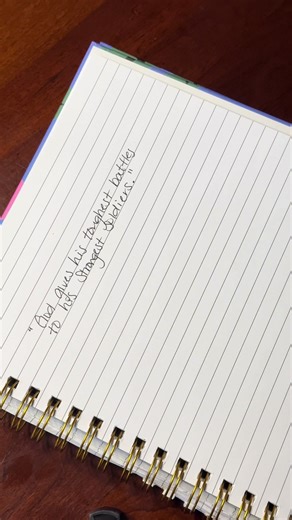 "God gives his toughest battles
to his strongest soldiers."